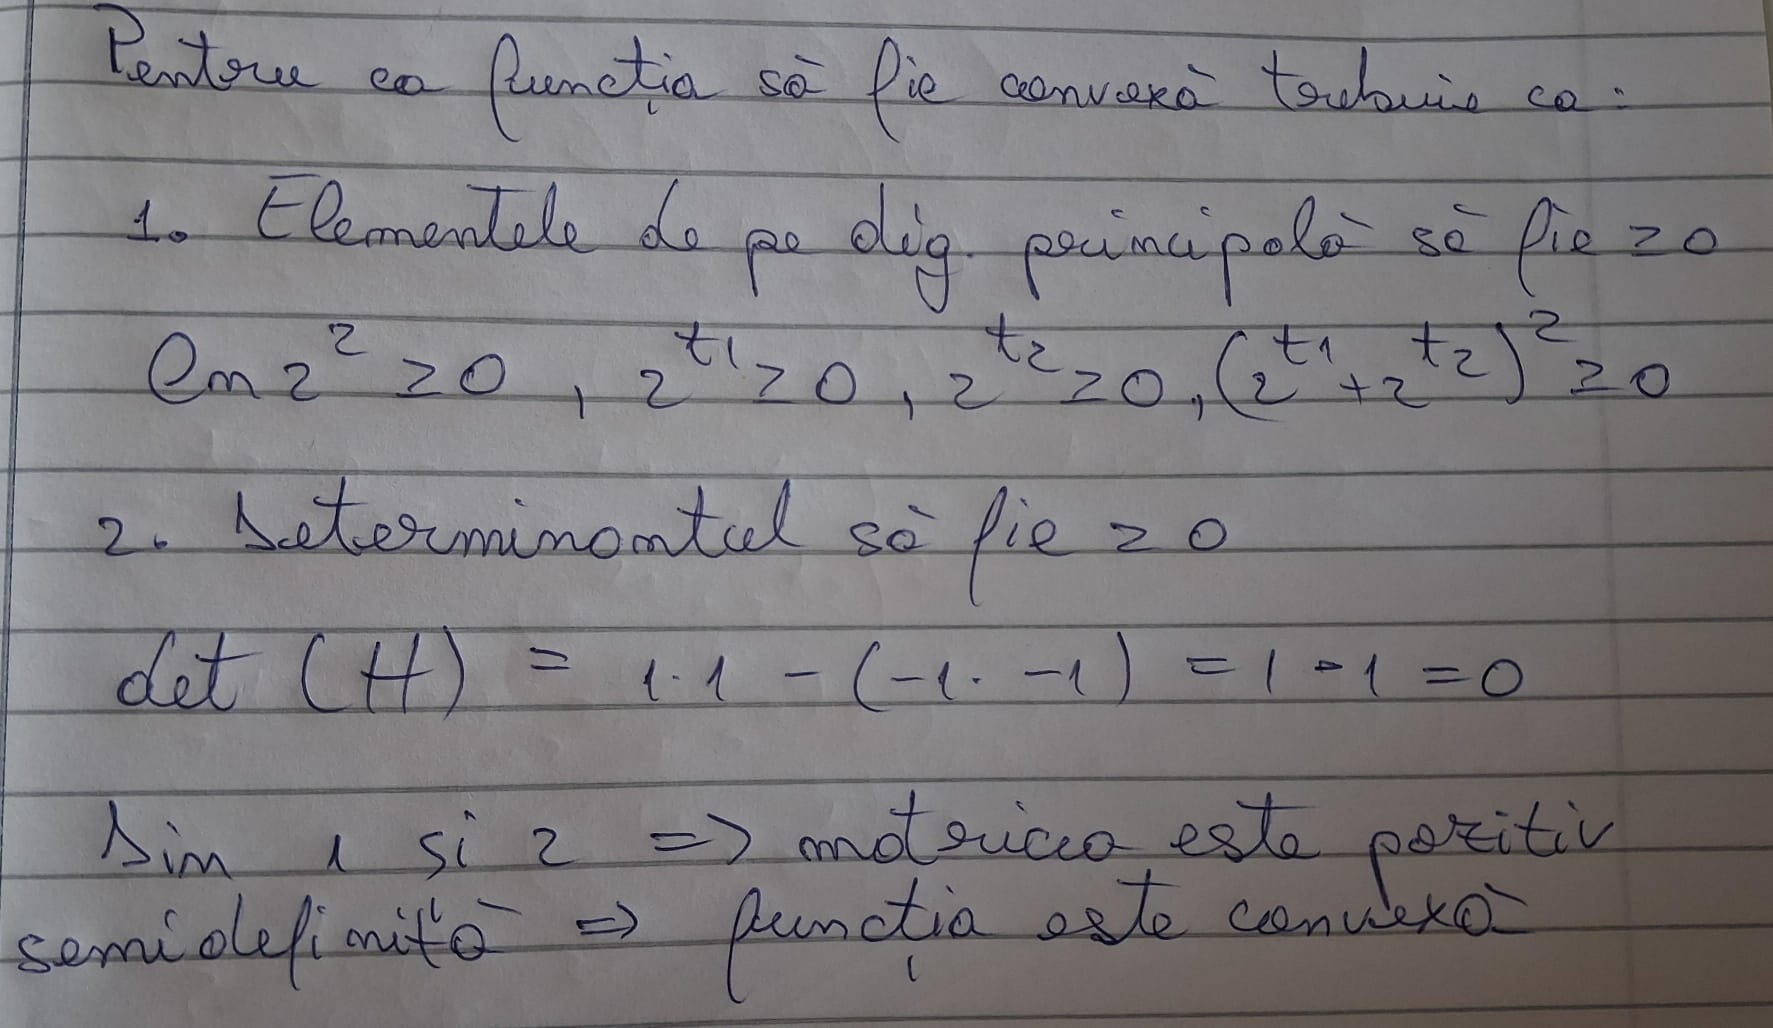 Pentru ca funcția să fie convexă trebuie ca:
1. Elementele de pe dig. principală să fie ≥ 0
ln 2² ≥ 0, 2^t1 ≥ 0, 2^t2 ≥ 0, (2^t1 + 2^t2)² ≥ 0
2. Determinantul să fie ≥ 0
det (H) = 1·1 - (-1· -1) = 1 - 1 = 0
Din 1 si 2 => matricea este pozitiv
semidefinită => funcția este convexă